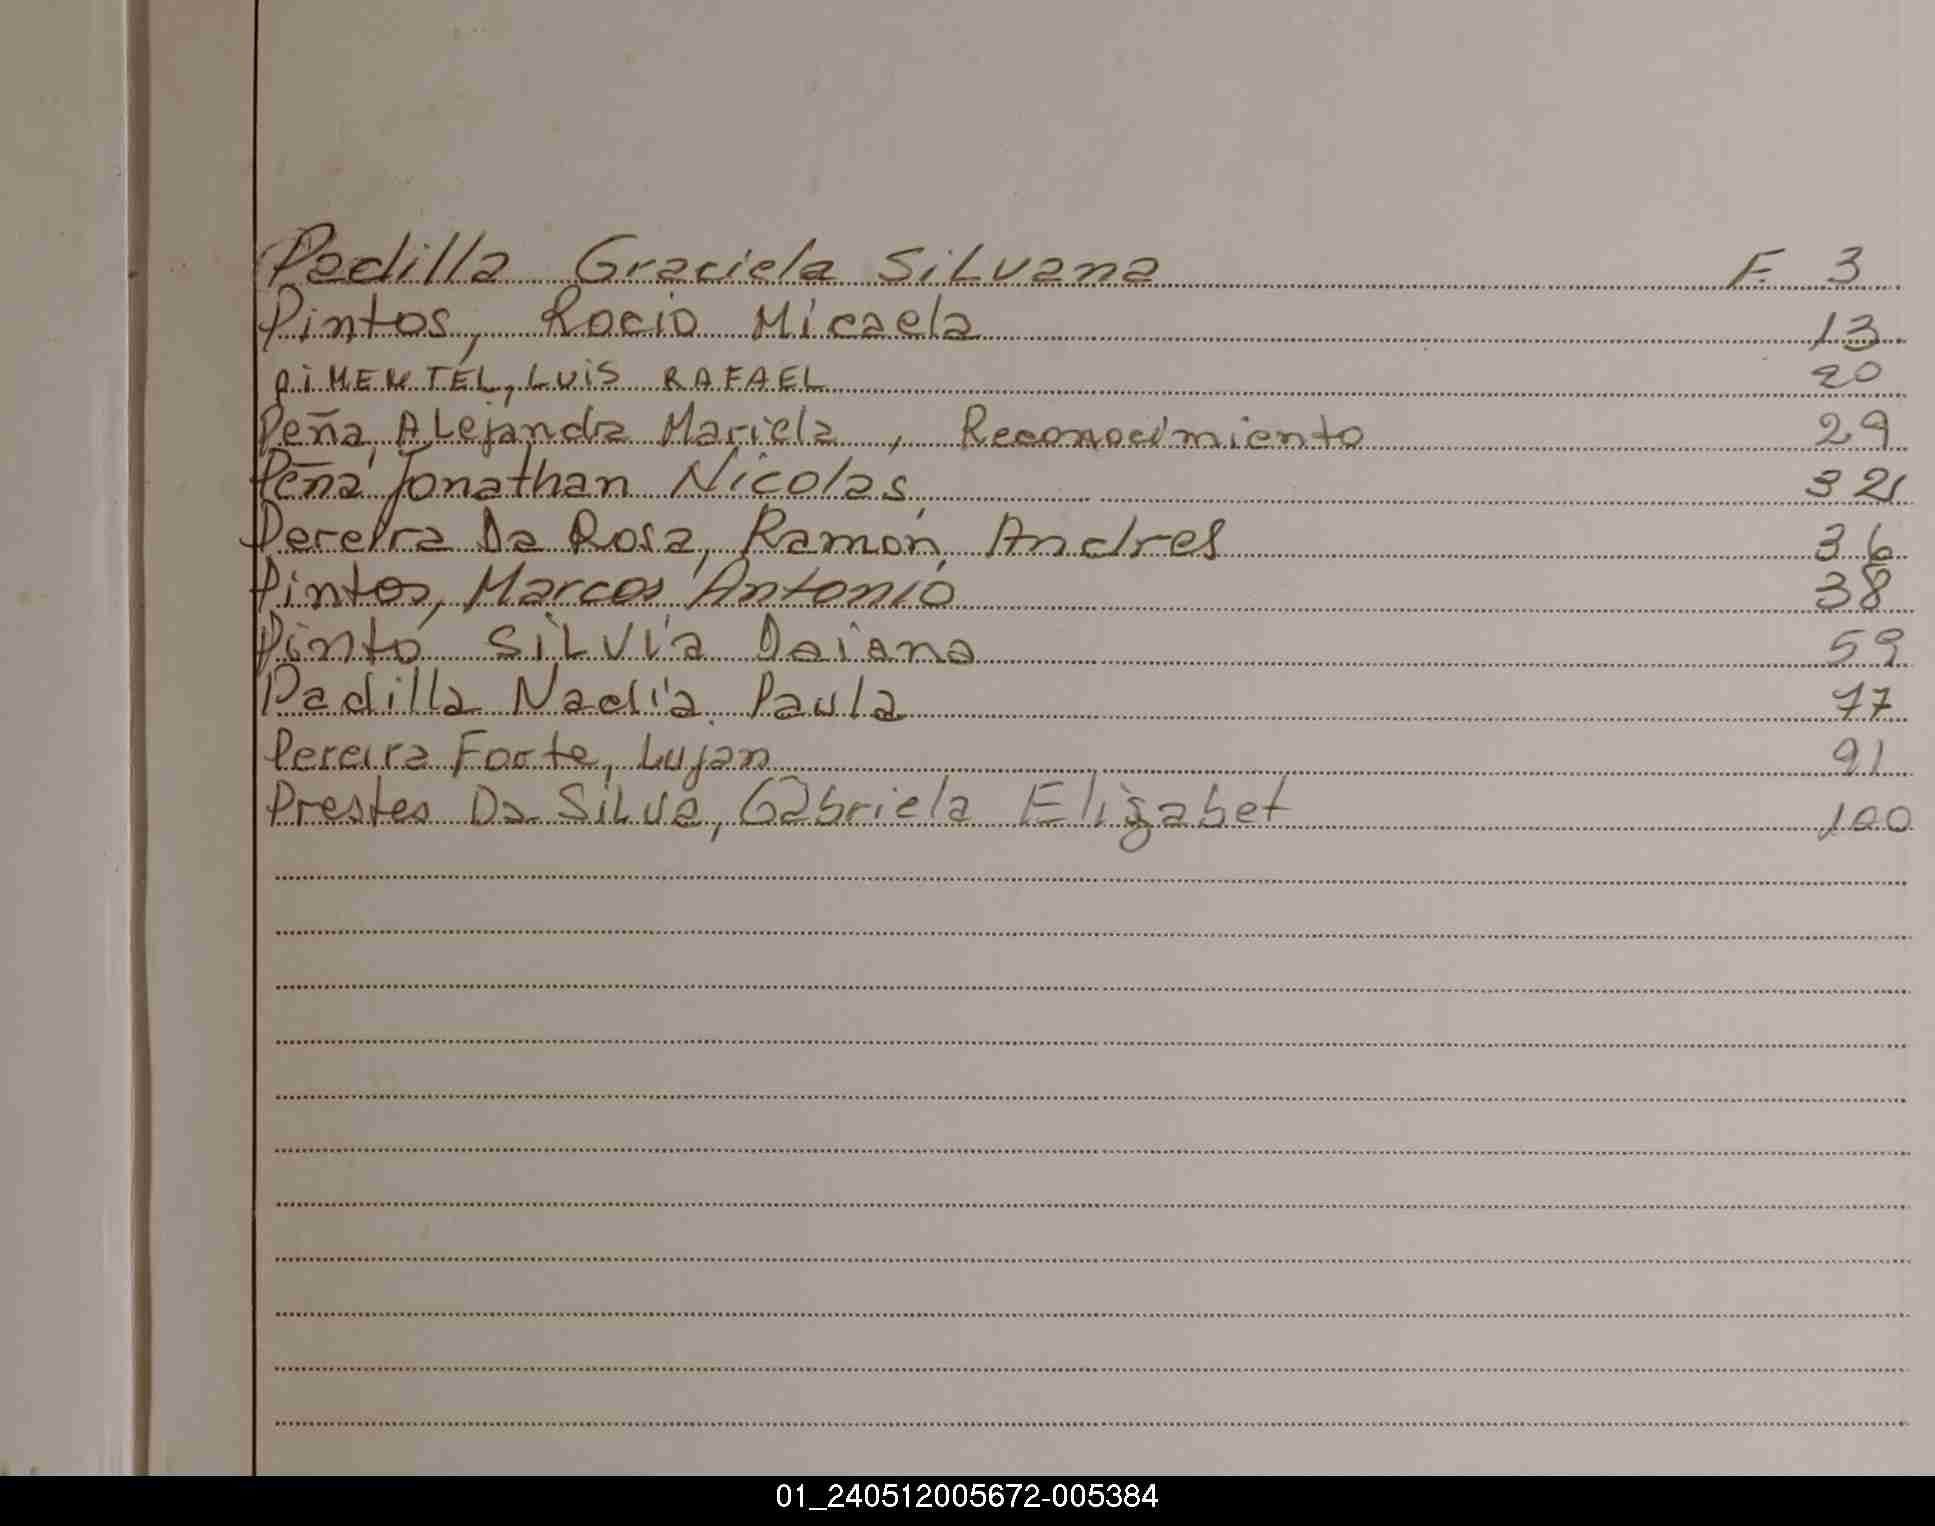 Padilla Graciela Silvana F. 3
Pintos, Rocio Micaela 13
PIMENTEL, LUIS RAFAEL 20
Peña, Alejanda Mariela, Reconocimiento 29
Peña, Jonathan Nicolas, 32
Pereira Da Rosa, Ramón, Andres 36
Pintos, Marcos Antonio 38
Pinto Silvia Daiana 59
Padilla Nadia Paula 77
Pereira Forte, Lujan 91
Prestes Da Silva, Gabriela Elizabet 100
01_240512005672-005384